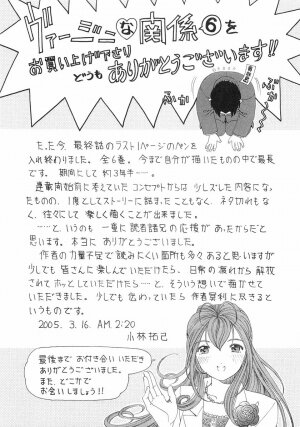 ヴァージンな関係⑥を
お買い上げ下さり
どうも ありがとうございます!!
ぶか
ぶか
た.た今、最終話のラスト1ページのペンを
入れ終りました。全6巻。今まで自分が描いたものの中で最長
です。期間にして約3年半…。
連載開始前に考えていたコンセプトからは少しズレした内容になっ
たものの、1度としてストーリーに詰まったこともなく、ネタ切れもな
く、往々にして楽しく描くことが出来ました。
……と、いうのも一重に読者諸兄の応援があったからだと
思います。本当にありがとうございました。
作者の力量不足で読みにくい箇所も多々あると思いますが
少しでも皆さんに楽しんでいただけたら、日常の疲れから解放
されてホッとしていただけたら…と、そういう想いで描かせて
いただきました。少しでも伝わっていたら作者冥利に尽きる
というものです。
2005. 3. 16. AM 2:20
小林拓己
最後までお付き合いいただき
ありがとうございました。
また、どこかで
お会いしましょう!!